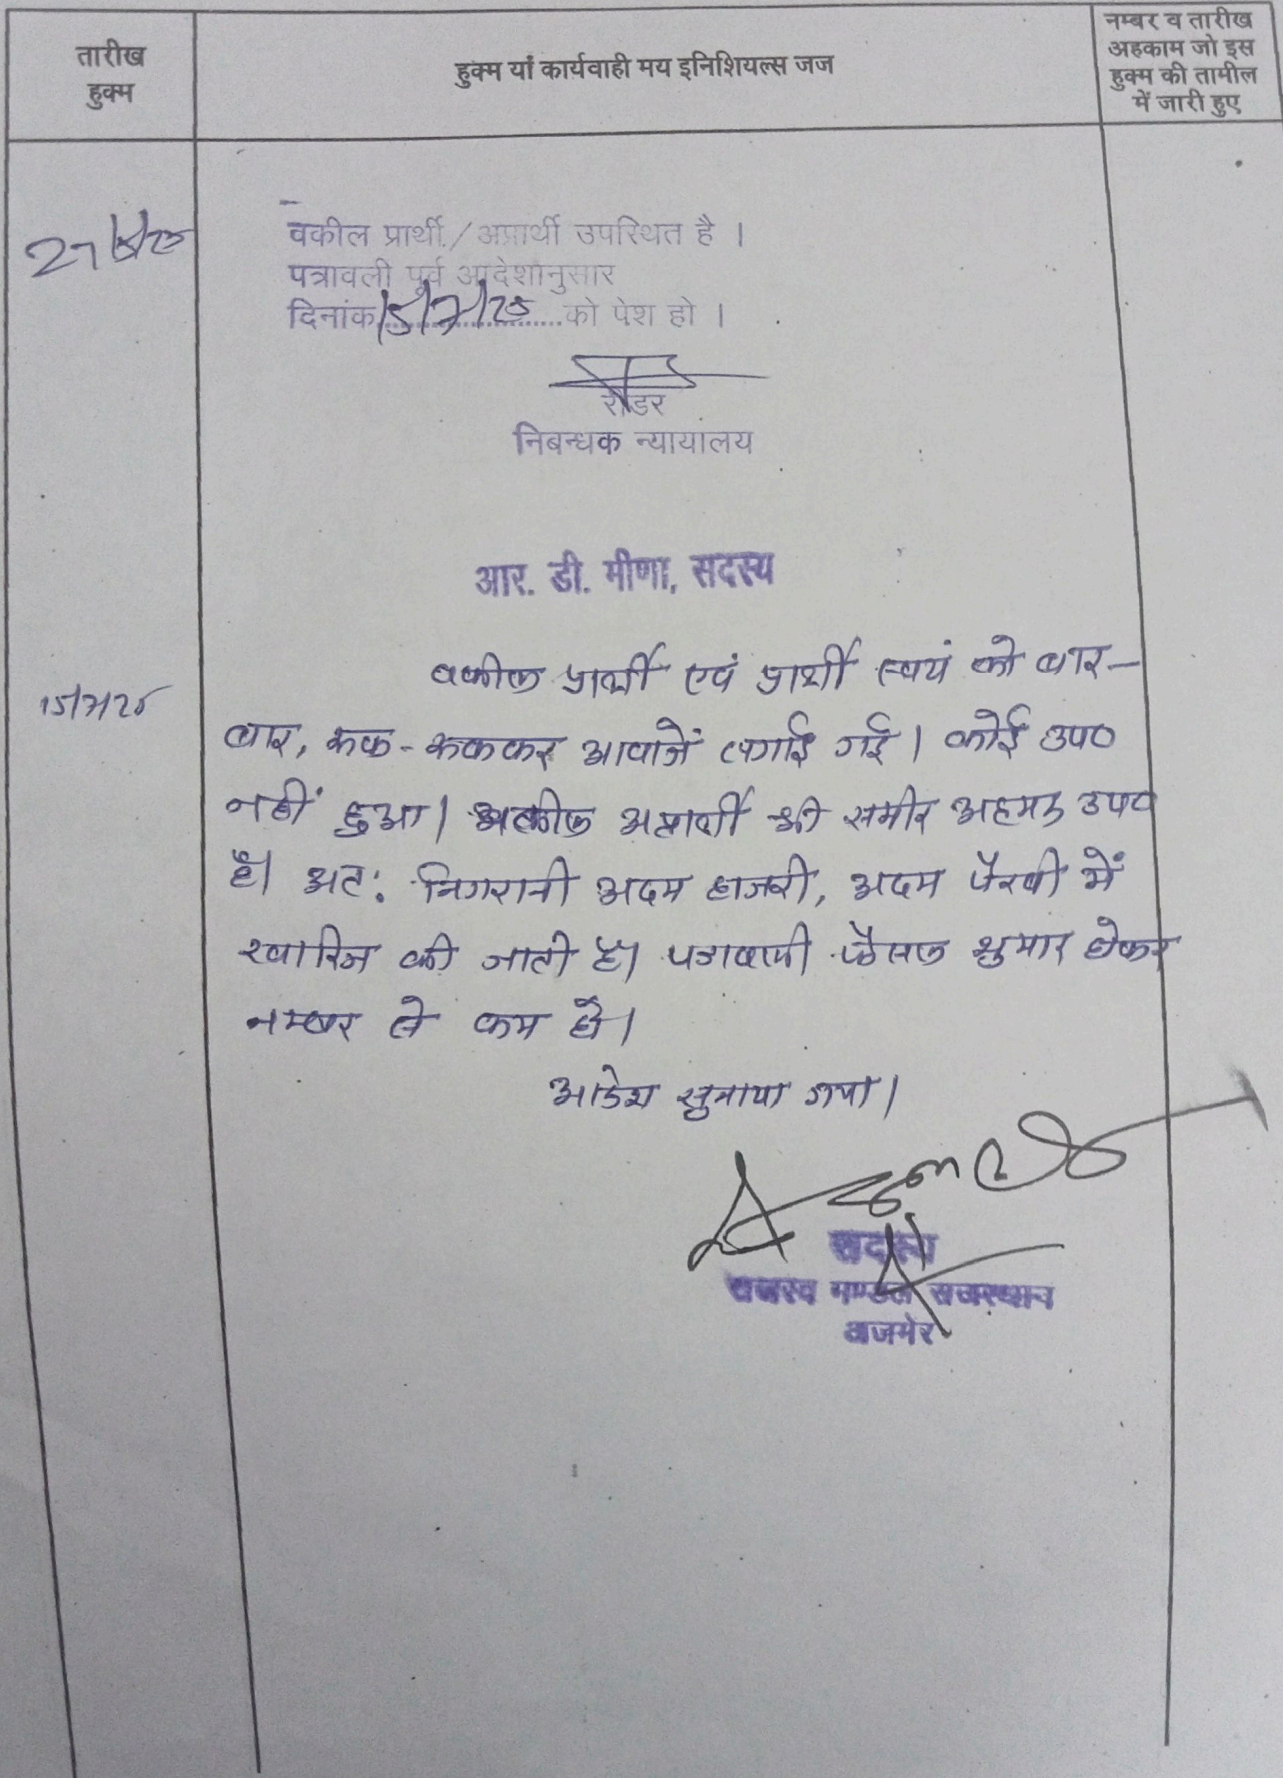 तारीख
हुक्म
हुक्म यां कार्यवाही मय इनिशियल्स जज
नम्बर व तारीख
अहकाम जो इस
हुक्म की तामील
में जारी हुए
वकील प्रार्थी/अप्रार्थी उपस्थित है ।
पत्रावली पूर्व आदेशानुसार
दिनांक 15/7/25 को पेश हो ।
रीडर
निबन्धक न्यायालय
आर. डी. मीणा, सदस्य
15/7/25
वकील प्रार्थी एवं प्रार्थी स्वयं को बार-
बार, रूक-रूककर आवाजें लगाई गई। कोई उप०
नहीं हुआ। वकील अप्रार्थी श्री समीर अहमद उप०
है। अत: निगरानी अदम हाजरी, अदम पैरवी में
खारिज की जाती है। पत्रावली फैसल शुमार होकर
नम्बर से कम हो।
आदेश सुनाया गया।
सदस्य
राजस्व मण्डल राजस्थान
अजमेर